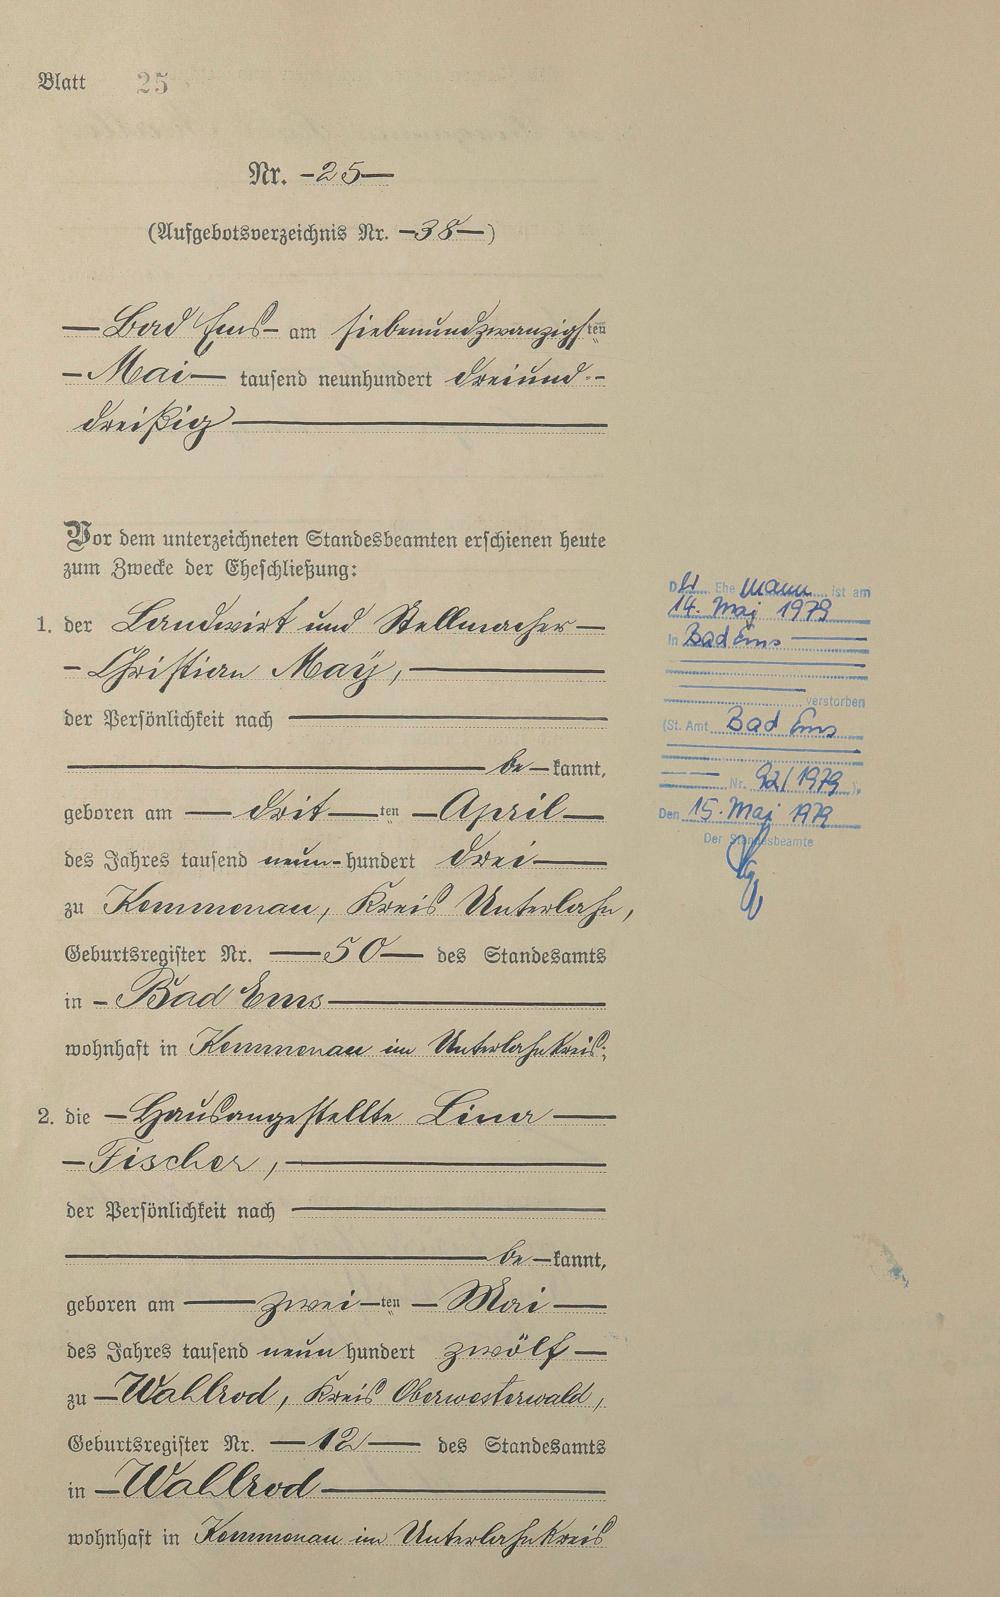 Blatt 25
Nr. —25—
(Aufgebotsverzeichnis Nr. —38—)
— Bad Ems — am siebenundzwanzigsten
— Mai — tausend neunhundert dreiund-
dreißig —
Vor dem unterzeichneten Standesbeamten erschienen heute
zum Zwecke der Eheschließung:
1. der Landwirt und Stellmacher —
— Christian Maÿ, —
der Persönlichkeit nach —
— be — kannt,
geboren am — drit — ten — April —
des Jahres tausend neun-hundert drei —
zu Kemmenau, Kreis Unterlahn,
Geburtsregister Nr. — 50 — des Standesamts
in — Bad Ems —
wohnhaft in Kemmenau im Unterlahnkreis;
2. die — Hausangestellte Lina —
— Fischer, —
der Persönlichkeit nach —
— be — kannt,
geboren am — zwei — ten — Mai —
des Jahres tausend neun hundert zwölf —
zu — Wahlrod, Kreis Oberwesterwald,
Geburtsregister Nr. — 12 — des Standesamts
in — Wahlrod —
wohnhaft in Kemmenau im Unterlahnkreis
Der Ehemann ist am
14. Mai 1979
in Bad Ems —
verstorben
(St. Amt Bad Ems
Nr. 92/1979 ),
Den 15. Mai 1979
Der Standesbeamte